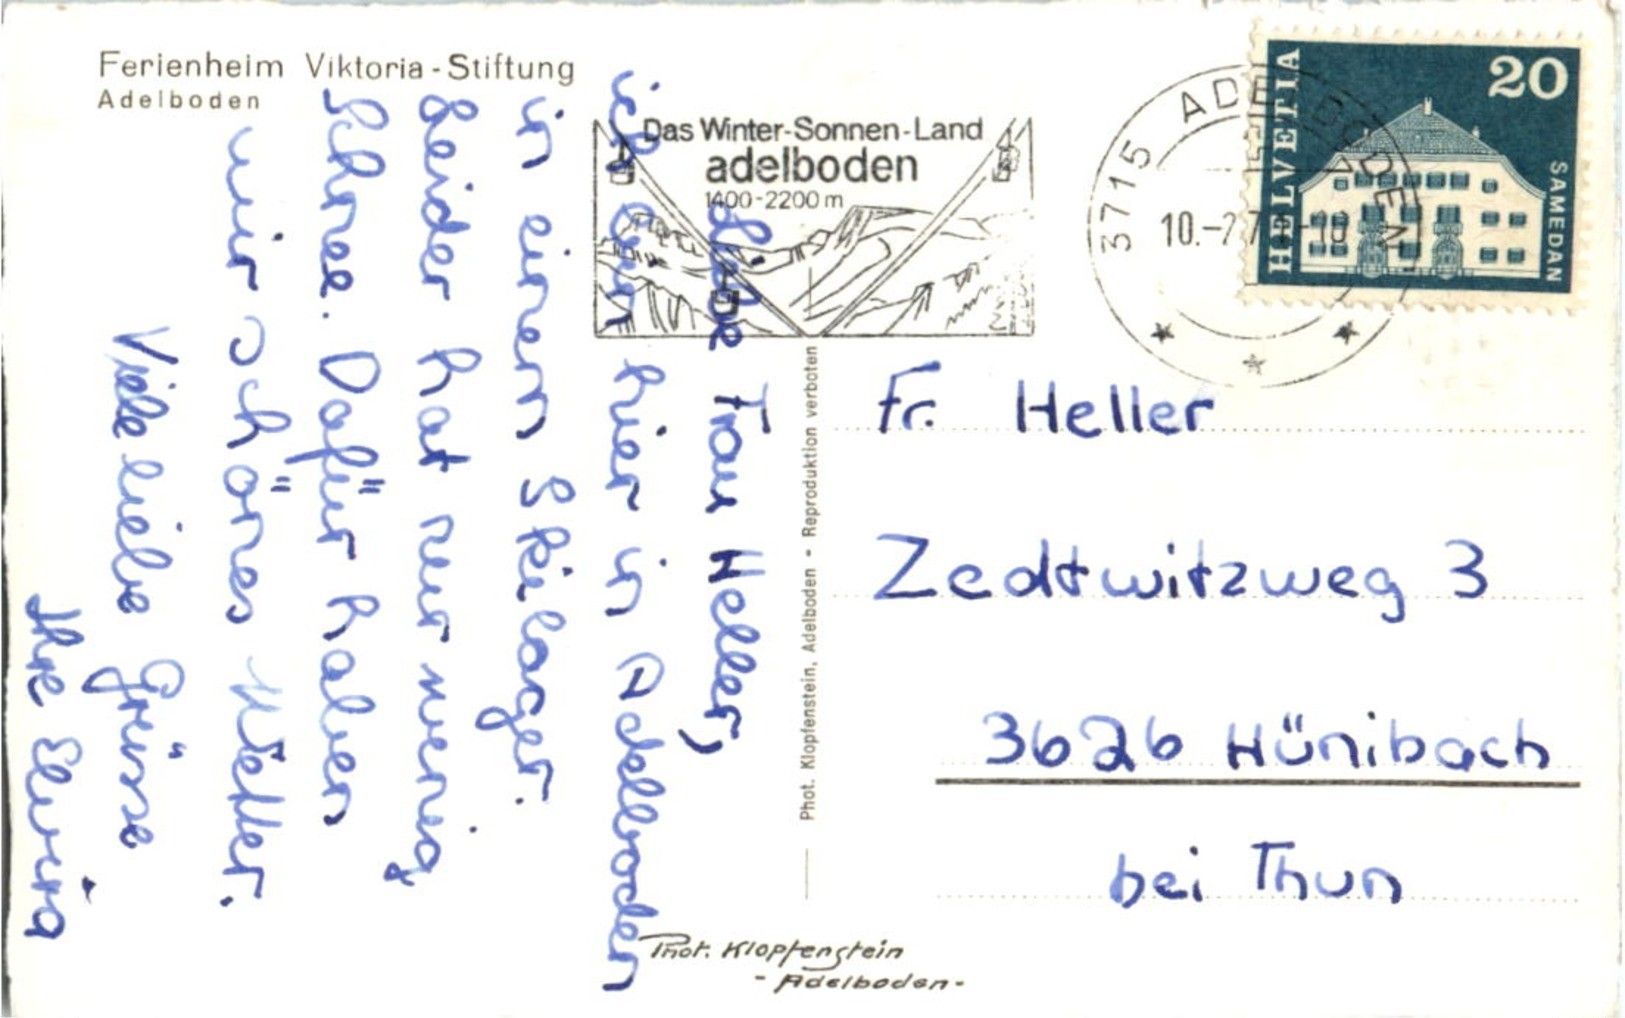 Ferienheim Viktoria-Stiftung
Adelboden
Das Winter-Sonnen-Land
adelboden
1400-2200 m
3715 ADELBODEN
10.-2.7
-18
HELVETIA
20
SAMEDAN
Liebe Frau Heller,
ich bin hier in Adelboden
in einem Skilager.
Leider hat nur wenig
Schnee. Dafür haben
wir schönes Wetter.
Viele liebe Grüsse
Ihre Elvira
Fr. Heller
Zedtwitzweg 3
3626 Hünibach
bei Thun
Phot. Klopfenstein, Adelboden - Reproduktion verboten
Phot. Klopfenstein
- Adelboden -